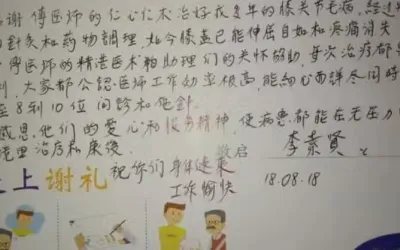 谢 傅医师的仁心仁术治好我多年的膝关节毛病,经过
针灸和药物調理,如今膝盖已能伸屈自如和疼痛消失
傅医师的精湛医术和助理们的关怀協助,每次治疗都
大家都公認医师工作効率极高,能细心而詳尽同時
至8到10位 问診和施針
感恩他们的爱心和服务精神,使病患都能在无压力
境里治疗和康復。
敬启
李素賢 上
上 谢 礼
祝你们 身体健康
工作愉快
18.08.18